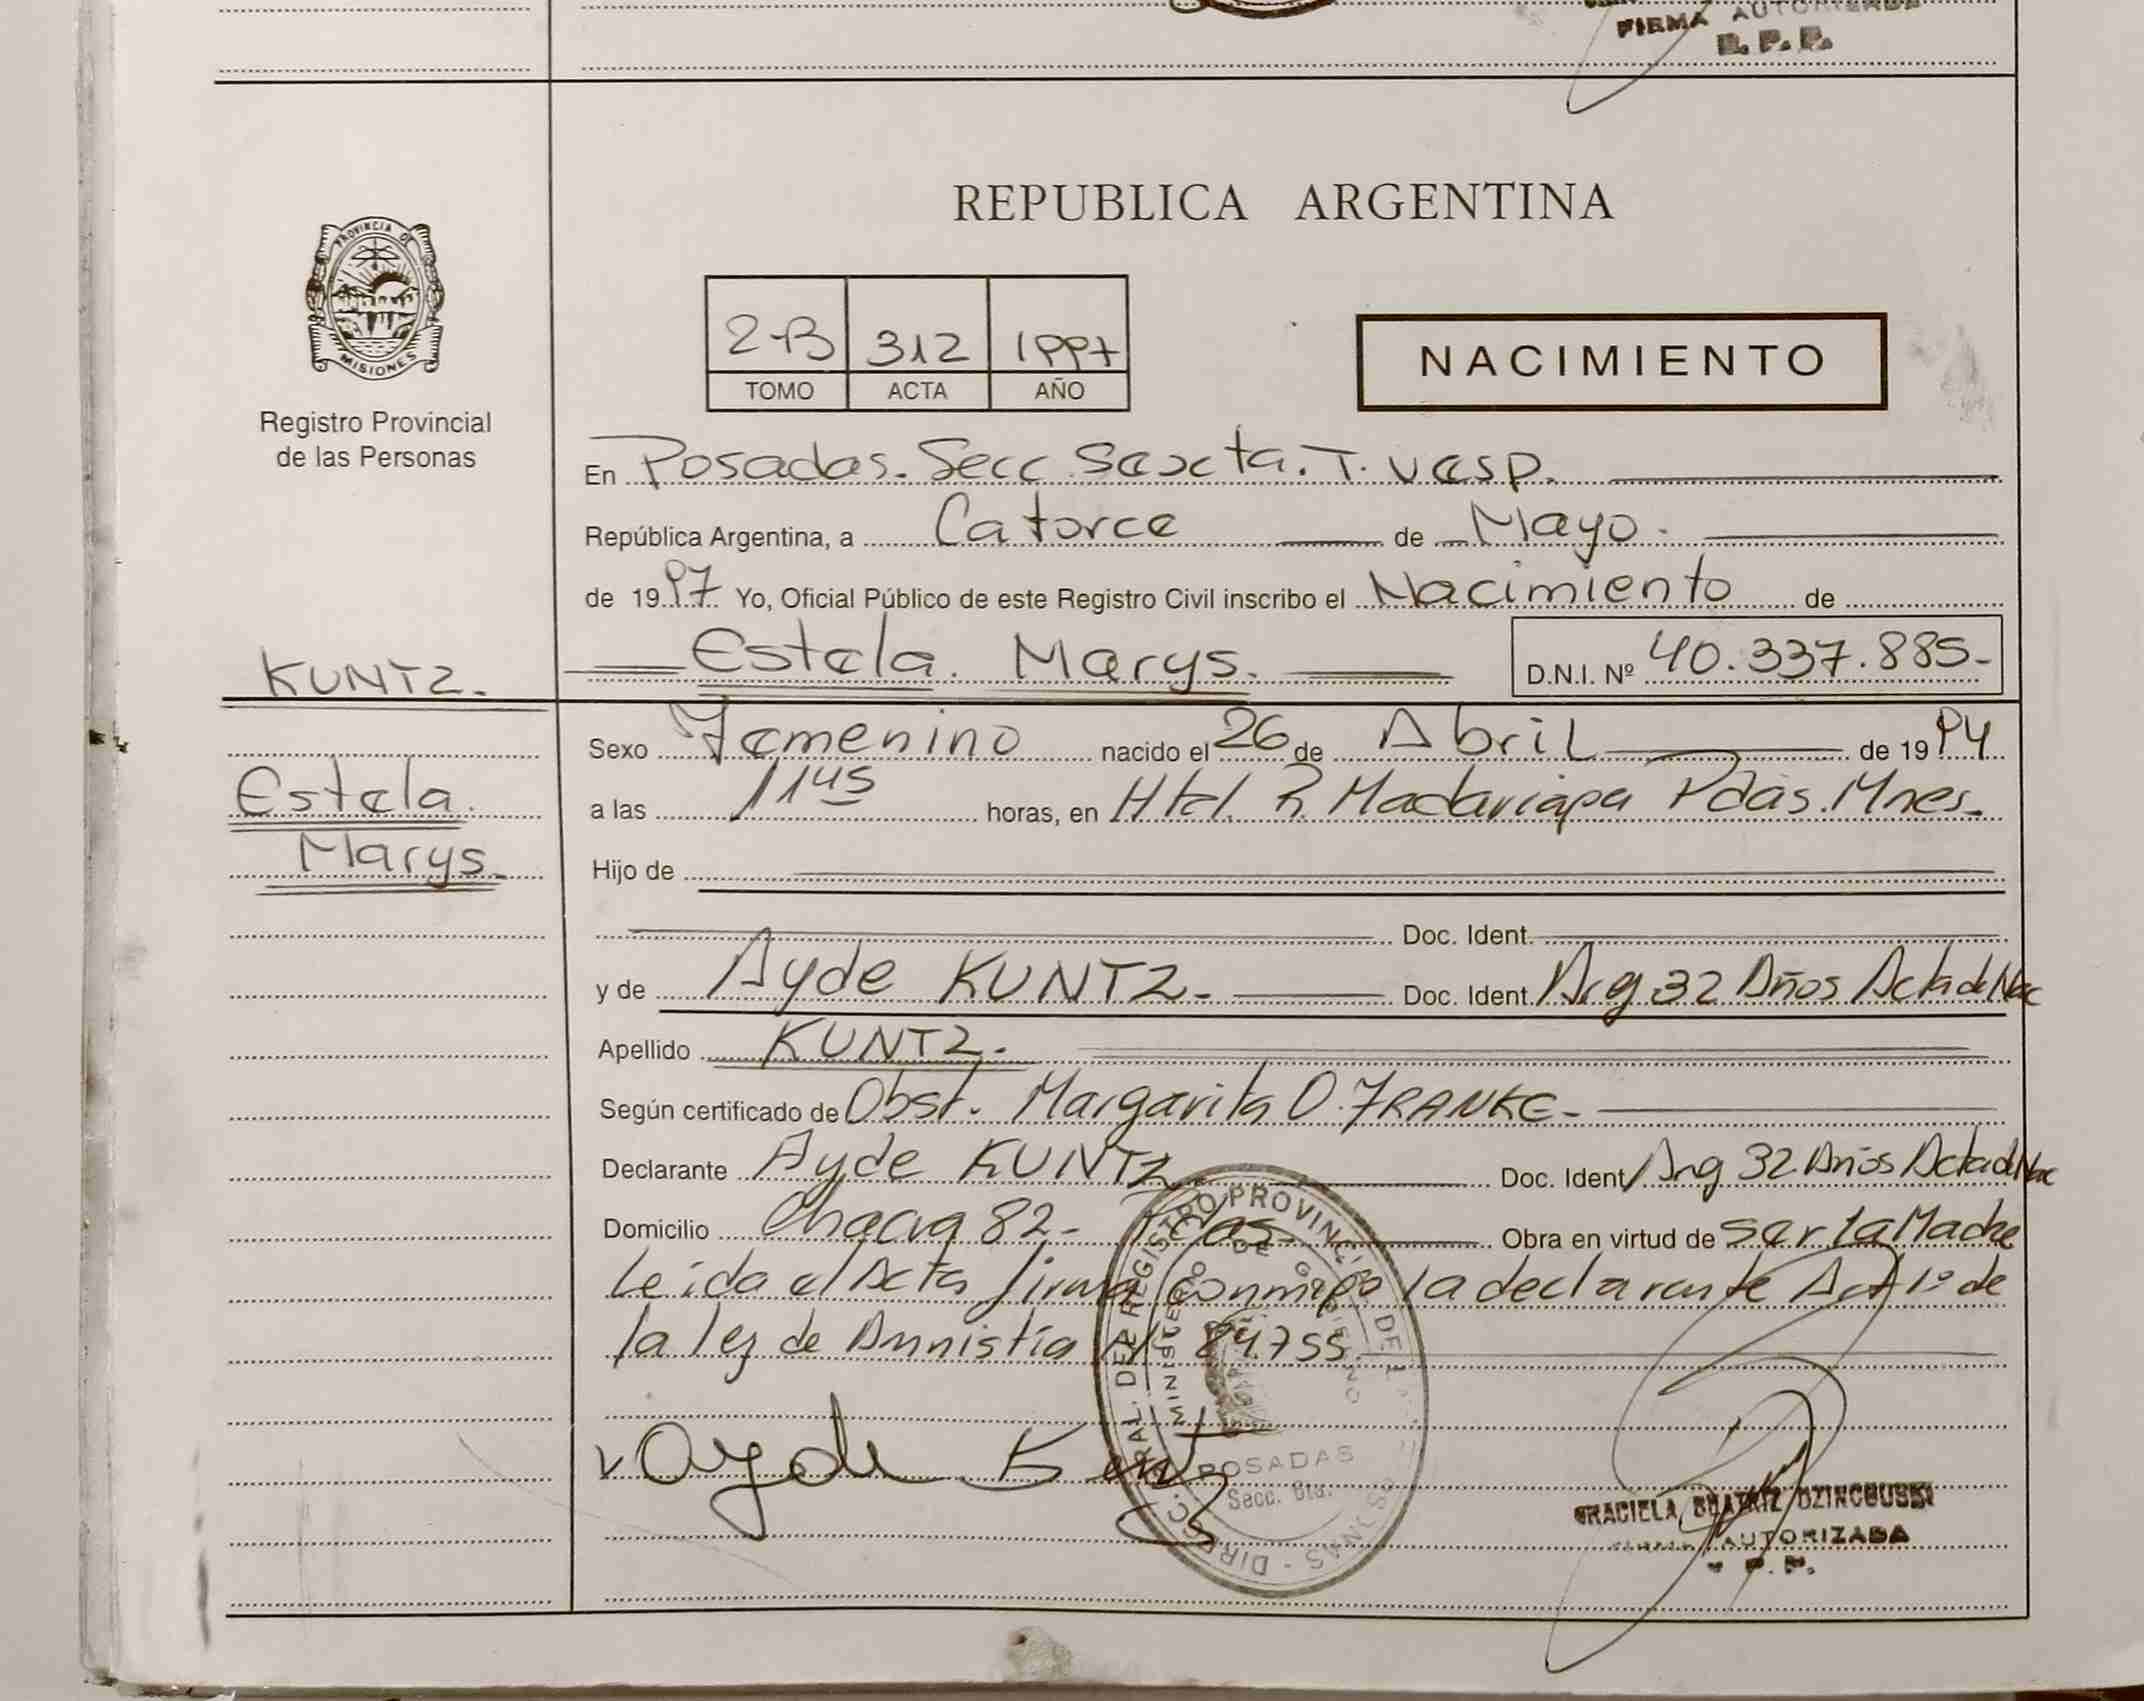 FIRMA AUTORIZADA
R. P. P.
PROVINCIA DE
MISIONES
Registro Provincial
de las Personas
REPUBLICA ARGENTINA
2-B 312 1997
TOMO ACTA AÑO
NACIMIENTO
En Posadas. Secc. Sexta. T. Vesp.
República Argentina, a Catorce de Mayo.
de 1997 Yo, Oficial Público de este Registro Civil inscribo el Nacimiento de
Estela. Marys. D.N.I. Nº 40.337.885-
KUNTZ.
Estela.
Marys.
Sexo Femenino nacido el 26 de Abril de 1994
a las 1145 horas, en Htal. R. Madariaga Pdas. Mnes.
Hijo de
Doc. Ident.
y de Ayde KUNTZ.- Doc. Ident Arg 32 Años Acta de Nac
Apellido KUNTZ.
Según certificado de Obst. Margarita O. FRANKE-
Declarante Ayde KUNTZ. Doc. Ident Arg 32 Años Acta de Nac
Domicilio Chacra 82- Pdas- Obra en virtud de ser la Madre
Leida el Acta firma conmigo la declarante Art 1º de
la ley de Amnistía 24.755.
Ayde Kuntz
DIRECC. GRAL. DEL REGISTRO PROVINCIAL DE LAS PERSONAS
MINISTERIO DE GOBIERNO
POSADAS
Secc. 6ta.
GRACIELA BEATRIZ
AUTORIZADA